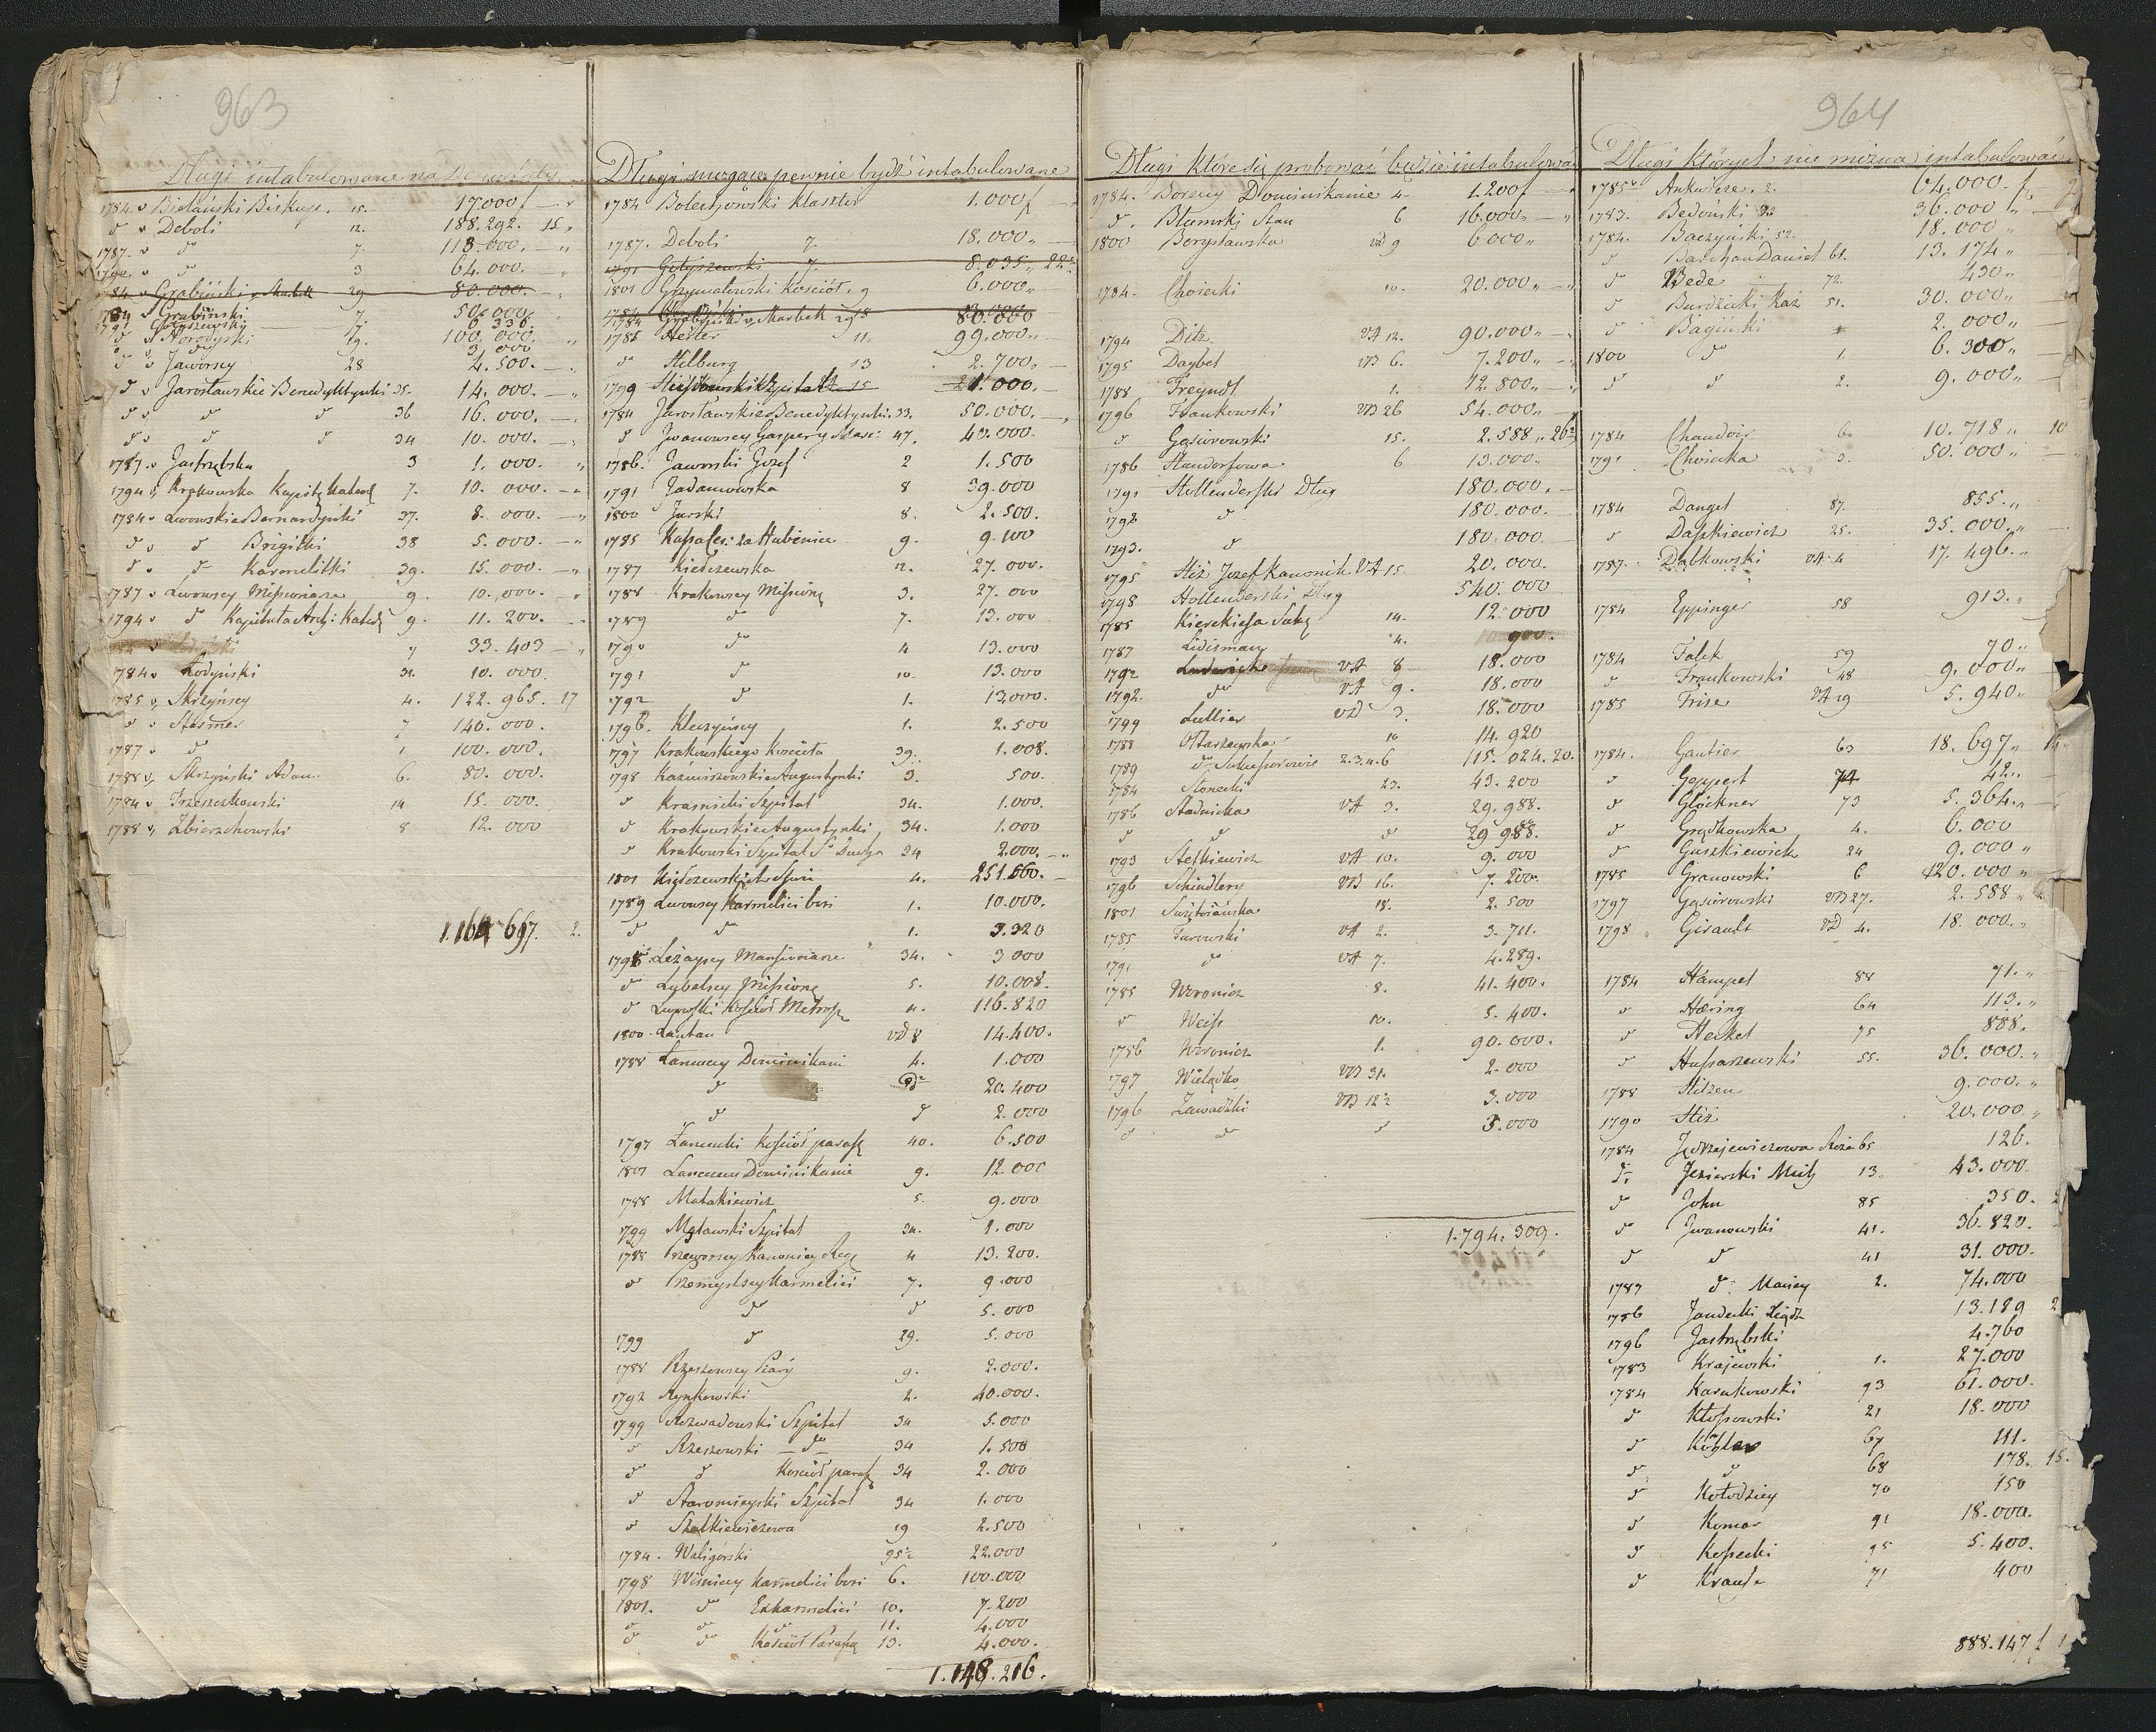 963
Długi intabulowane na
1784. v Bielański Biskup. 15. 17000 f
d v Deboli 12. 188.292. 15
1787. v d 7. 118.000.
1790. v d 3 64.000.
84 v Grabiński v Marbek 29 80.000.
1784 v Grabiński 7. 50.000
1791 Gołyszewsky 17. 8 335.
d v Horodyski 19. 100.000.
3 000
d v Jaworscy 28 4.500.
d v Jarosławskie Benedyktynki 35. 14.000.
d v d d 36 16.000.
d v d d 34 10.000.
1787 v Jastrzębska 3 1.000.
1794 v Krakowska Kapit. Kated. 7. 10.000.
1784 v Lwowskie Bernardynki 37. 8.000.
d v d Brigitki 38 5.000.
d v d Karmelitki 39. 15.000.
1787 v Lwowscy Missionarze 9. 10.000.
1794 v d Kapituła Arch: Kated. 9. 11.200.
33.403
1784 v Łodyński 31. 10.000.
1785 v Skrzyńscy 4. 122.965. 17
d v Stesmer 7 140.000.
1787 v d 1 100.000.
1788 v Skrzyński Adam. 6. 80.000.
1784 v Trzeszczkowski 14 15.000.
1788 v Zbierzchowski 8 12.000
1.164.697. 2.
Długi mogące pewnie bydź intabulowane
1784 Bolechowski Klasztor 1.000 f
1787. Deboli 7. 18.000
1791 Gołyszewski 7. 8.035 22½
1801 Grzymałowski Kościół. 9 6.000
1784 Grabiński v Marbek 29 80.000
1785 Hester 11. 99.000
d Hilburg 13 2.700
1799 Szpital 15 21.000.
1784 Jarosławskie Benedyktynki. 33. 50.000.
d Jwanowscy Gasper y 47. 40.000.
1786. Jaworski Jozef 2 1.500
1791 Jadamowska 8 39.000
1800 Jurski 8. 2.500.
1785 Kapalec: za Hubenice 9. 9.100
1787 Kiełczewska 12. 27.000.
1788 Krakowscy Missiona 3. 27.000
1789 d 7. 13.000
1790 d 4 13.000
1791 d 10. 13.000
1792 d 1. 13000.
1796. Kleczyńscy 1. 2.500
1797 Krakowskiego Kościoła 39. 1.008.
1798 Kazimirzowskie Augustynki 3. 500.
d Krasnicki Szpital 34. 1.000.
d Krakowskie Augustynki 34. 1.000
d Krakowski Szpital S. Ducha 34 2.000.
1801 Kiełczewski 4. 251.660.
1789 Lwowscy Karmelici bosi 1. 10.000.
d d 1. 3.320
1798 Leżayscy Mansionarze 34. 3 000
d Lubelscy Missiona 5. 10.008.
d Lwowski Kościół Metrop. 4. 116.820
1800 Lautau VD 8 14.400.
1788 Łancuccy Dominikani 4. 1.000
d 20.400
d d 2.000
1797 Łancucki Kościół paraf. 40. 6.500
1801 Lancucen Dominikanie 9. 12.000
1788 Matakiewicz 5. 9.000
1799 Mętawski Szpital 34. 1.000
1788 Przeworscy Kanonicy Reg. 4 13.200.
d Przemyslscy Karmelici 7. 9.000
d d 5.000
1799 d 29. 5.000
1788 Rzeszowscy Piary 9. 2.000.
1792 Rynkowski 2. 40.000.
1799 Rozwadowski Szpital 34 5.000
d Rzeszowski — d — 34 1.500
d d Kościół paraf. 34 2.000
d Staromieyski Szpital 34 1.000
d Szatkiewiczowa 19 2.500
1784. Waligórski 95½ 22.000
1798 Wiśniccy Karmelici bosi 6. 100.000
1801. d Exkarmelici 10. 7.200
d d d 11. 4.000
d d Kościół Paraf. 13. 4.000.
1.148.216.
Długi które się probować będzie intabulować
1784. Borscy Dominikanie 4 1.200 f
d. Błamski Stan 6 16.000
1800 Borysławska VD 9 6000
1784. Choiecki 10. 20.000
1794 Ditz VA 12. 90.000
1795 Daybel VB 6. 7.200
1788 Freyndt 1. 12.800
1796 Frankowski VB 26 54.000
d Gąsiorowski 15. 2.588 26½
1786 Handorfowa 6 13.000
1791 Hollenderski Dług 180.000.
1792 d 180.000.
1793. d 180.000
1795 Hiż Jozef Kanonik VA 15 20.000.
1798 Hollenderski Dług 540.000
1785 Kierekiesza Suk. 14. 12.000
1787 Lidismany 4. 900.
1792 VA 8 18.000
1792. d VA 9. 18.000
1799 Lullier VD 3. 18.000
1788 Ostaszewska 10 14.920
1789 d Sukcessorowie 2.3.4.6 115.024.20.
1784 Słonecki 23. 43.200
1786 Stadnicka VA 3. 29.988.
d d d 29 988.
1793 Stetkiewicz VA 10. 9.000
1796 Schindlery VB 16. 7.200.
1801 Switoiańska 18. 2.500
1785 Turowski VA 2. 3.711.
1791 d VA 7. 4.289.
1785 Woronicz 8. 41.400.
d Weiss 10. 5.400.
1786 Woronicz 1. 90.000.
1797 Wielądko VB 31. 2.000
1796 Zawadzki VB 12½ 3.000
d d d 3.000
1.794.309.
964
Długi których nie można intabulować
1785 Ankwicze. 2. 64.000. f
1783. Bedoński 22 36.000
1784. Baczyński 52. 18.000
d Barchan Daniel 61. 13.174
d Bede 72. 430
d Burdzicki Kaz 51. 30.000
d Bagiński 2.000
1800 d 1. 6.300
d d 2. 9.000
1784 Chaudoir 60 10.718 10
1791 Choiecka 3. 50.000
1784 Dangel 87. 855.
d Daszkiewicz 25. 35.000
1787. Dąbkowski VA 4 17.496.
1784 Eppinger 58 913.
1784 Falek 59 70
d Frankowski 48 9.000
1785 Frize VA 19 5.940
1784. Gautier 63 18.697
d Geppert 74 42
d Glöckner 73 5.364
d Grądkowska 4. 6.000
d Guszkiewicz 24 9.000
1785 Granowski 6 120.000
1797 Gąsiorowski VB 27. 2.588
1798 Girault VD 4. 18.000.
1784 Hampel 88 71.
d Hæring 64 113.
d Heckel 75 888.
d Hussarzewski 55. 36.000.
1788 Hilzen 9.000.
1790 Hiż 20.000
1784 Jędrzejewiczowa Róża 65 126.
d. Jezierski Mich. 13. 43.000
d John 85 350.
d Jwanowski 41. 36.820.
d d 41 31.000.
1787 d: Maciey 2. 74.000
1786 Jandecki 13.189
1796 Jastrzębski 4.760
1783 Krajewski 1. 27.000
1784 Karukowski 93 61.000.
d Kłossowski 21 18.000
d Köhler 67 111.
d d 68 178. 15.
d Kołodziey 70 150
d Komar 91 18.000.
d Kossecki 95 5.400.
d Krause 71 400
888.147 f